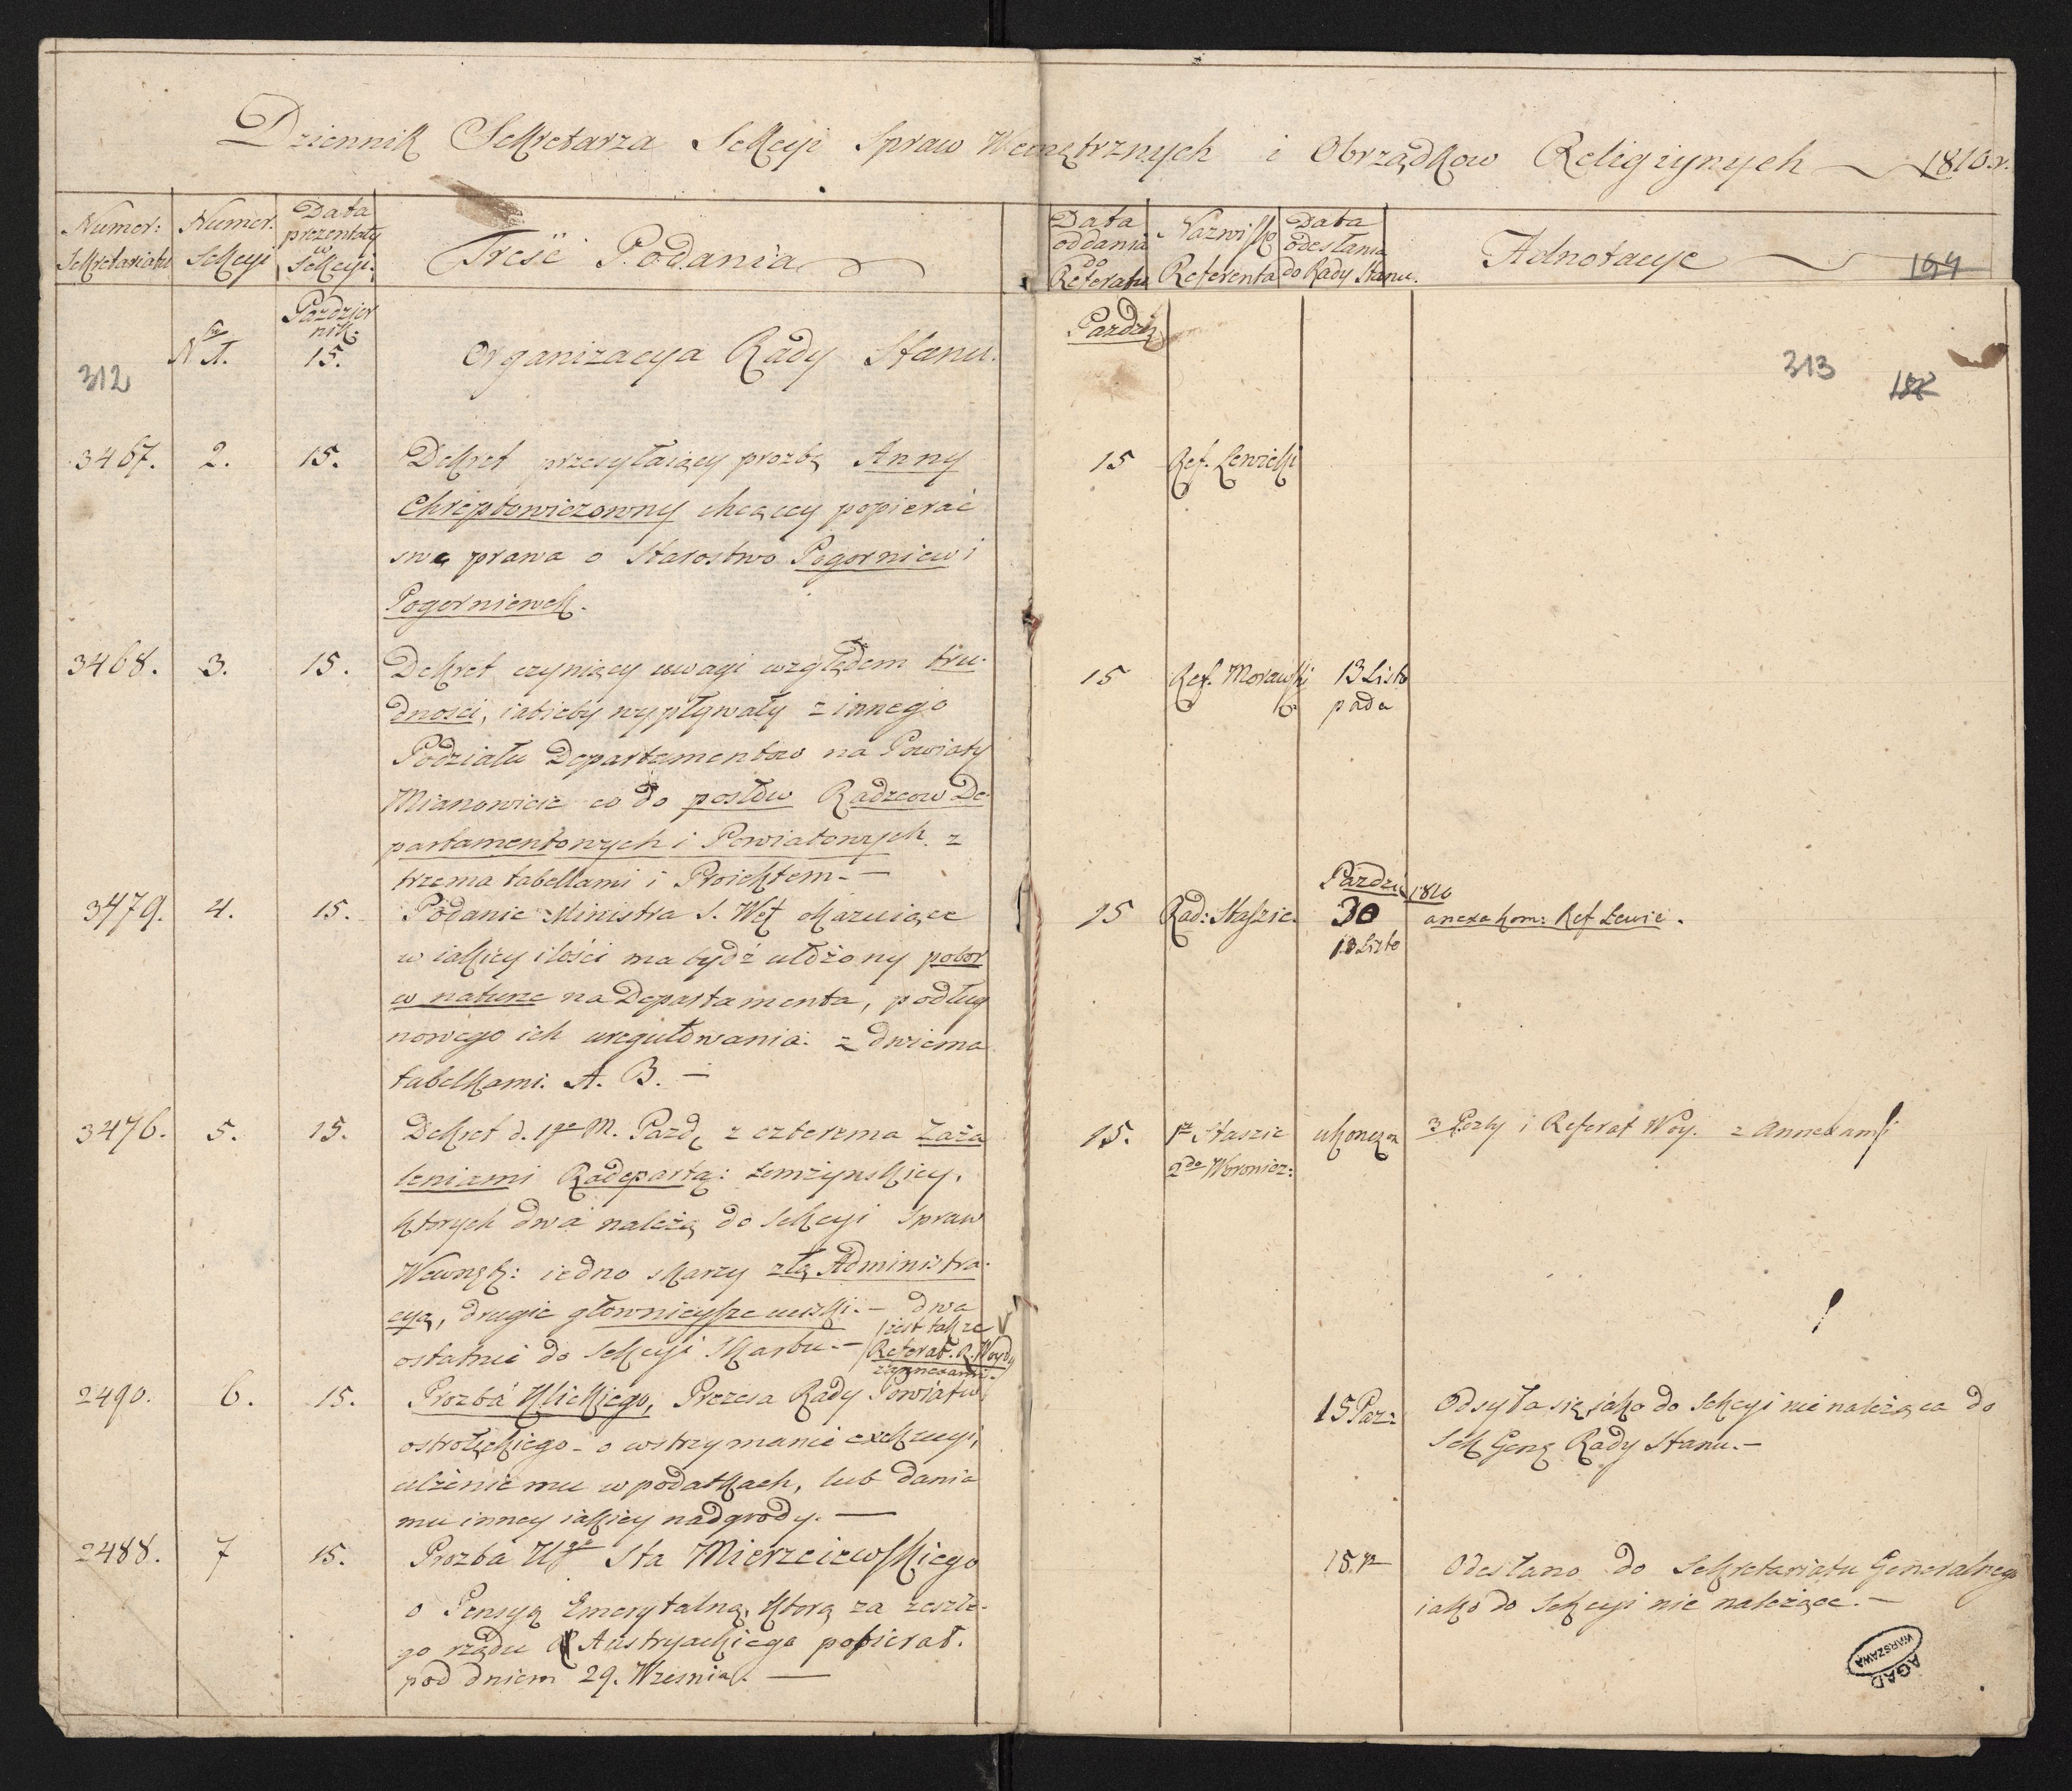 Dziennik Sekretarza Sekcyi Spraw Wewnętrznych i Obrządkow Religiynych 1810.r.
Numer: Sekretariatu
Numer. Sekcyi
Data prezentaty w Sekcyi.
Treść Podania
Data oddania do Referatu
Nazwisko Referenta
Data odesłania do Rady Stanu.
Adnotacye
194
Paździer
nik.
Paździ
N 1. 15. Organizacya Rady Stanu.
312
313
3467. 2. 15. Dekret przesyłaiący prozbę Anny
Chreptowiczowny chcącey popierać
swe prawa o Starostwo Pogorniew i
Pogorniewek.
15 Ref. Lewicki
3468. 3. 15. Dekret czyniący uwagi względem tru-
dnosci, iakieby wypływały z innego
Podziału Departamentow na Powiaty
Mianowicie co do posłów Radzcow De-
partamentowych i Powiatowych z
trzema tabellami i Proiektem.
15 Ref. Morawski 13 Listo
pada
3479. 4. 15. Podanie Ministra S. Węt okazuiące
w iakiey ilości ma bydź ułożony pobor
w naturze na Departamenta, podług
nowego ich uregulowania. z dwiema
tabelkami. A. B.
15 Rad: Staszic.
Paździ 1810
30 anexa kom: Ref Lewic.
13 Listo
3476. 5. 15. Dekret d. 1go M. Pazdz z czterema Zaża
leniami Radeparta: Łomżynskiey,
ktorych dwa należą do Sekcyi Spraw
Wewnętz: iedno skarzy złą Administra-
cyą, drugie głownieysze uciski. - dwa
ostatnie do Sekcyi Skarbu. -
jest także
Referat. R. Woydy
z annexami.
15. 1o Staszic ukończon 3 Pozły i Referat Woy. z Annexami
2do Woronicz:
2490. 6. 15. Prozba Klickiego, Prezesa Rady Powiatu
ostrołęckiego - o wstrzymanie exekucyi,
ulżenie mu w podatkach, lub dania
mu inney iakiey nadgrody.
15 Paz: Odsyła się iako do Sekcyi nie należąca do
Sek Gene Rady Stanu. -
2488. 7 15. Prozba Ugo Sta Mierzeiewskiego
o Pensyą Emerytalną, ktorą za zeszłe-
go rządu Austryackiego pobierał.
pod dniem 29. Wrzesnia.
15. p Odesłano do Sekretariatu Generalnego
iako do Sekcyi nie należące. -
AGAD
WARSZAWA